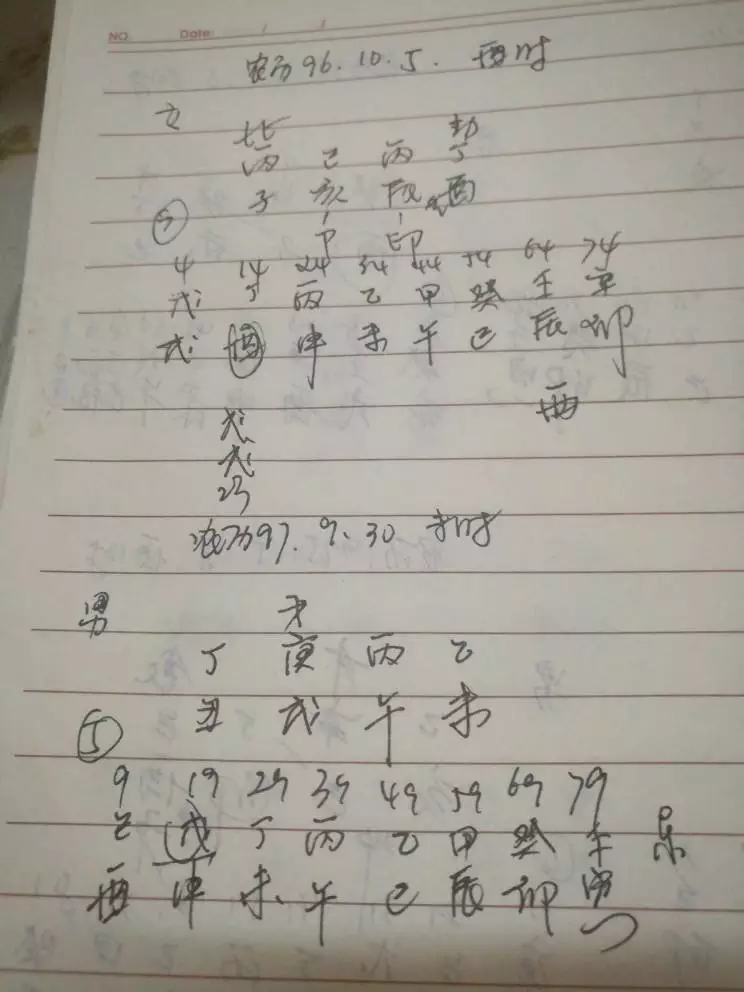 NO. Date: / /
农历96.10.5. 酉时
女 比 劫
丙 己 丙 丁
子 亥 辰 酉
印 印
4 14 24 34 44 54 64 74
戊 丁 丙 乙 甲 癸 壬 辛
戌 酉 申 未 午 巳 辰 卯
酉
戊
戌
农历97.9.30 未时
男 才
丁 庚 丙 乙
丑 戌 午 未
5
9 19 29 39 49 59 69 79
己 戊 丁 丙 乙 甲 癸 壬
酉 申 未 午 巳 辰 卯 寅